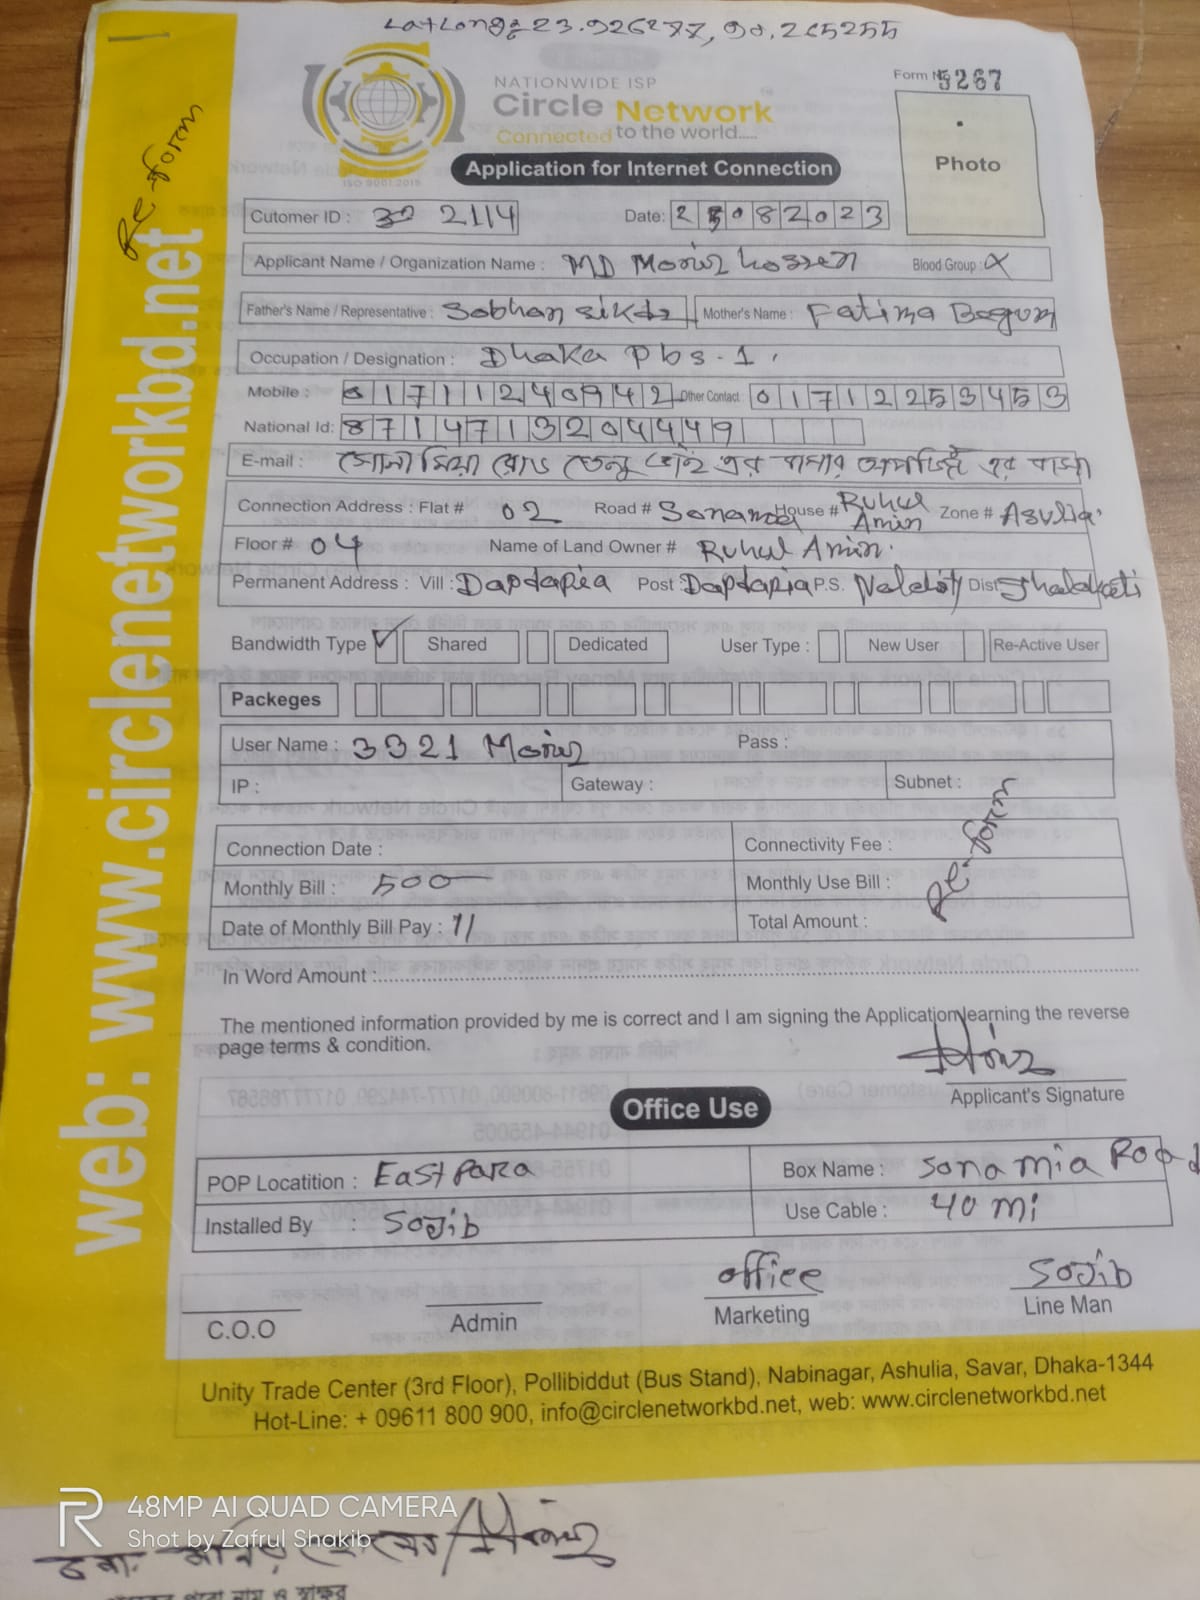 LatLong: 23.926277, 90.265255
Re-form
web: www.circlenetworkbd.net
NATIONWIDE ISP
Circle Network
Connected to the world.....
ISO 9001:2015
Form No 5267
Photo
Application for Internet Connection
Cutomer ID : 2114 Date: 25082023
Applicant Name / Organization Name : MD Monir hossen Blood Group :
Father's Name / Representative : Sobhan Sikdr Mother's Name : Fatima Begum
Occupation / Designation : Dhaka Pbs-1
Mobile : 01711240942 Other Contact 01712253453
National Id: 8714713204449
E-mail : সোনা মিয়া রোড এর বাসার অপজিট এর বাসা
Connection Address : Flat # 02 Road # Sonamia House # Ruhul Amin Zone # Asulia
Floor # 04 Name of Land Owner # Ruhul Amin
Permanent Address : Vill : Dapdapia Post Dapdapia P.S. Nalchity Dist Jhalokati
Bandwidth Type ✓ Shared Dedicated User Type : New User Re-Active User
Packeges
User Name : 3321 Monir Pass :
IP : Gateway : Subnet :
Connection Date : Connectivity Fee :
Monthly Bill : 500 Monthly Use Bill :
Date of Monthly Bill Pay : Total Amount :
Re-form
In Word Amount :
The mentioned information provided by me is correct and I am signing the Application learning the reverse
page terms & condition.
Applicant's Signature
Office Use
POP Locatition : East Para Box Name : Sona mia Road
Installed By : Sojib Use Cable : 40 mi
office Sojib
C.O.O Admin Marketing Line Man
Unity Trade Center (3rd Floor), Pollibiddut (Bus Stand), Nabinagar, Ashulia, Savar, Dhaka-1344
Hot-Line: + 09611 800 900, info@circlenetworkbd.net, web: www.circlenetworkbd.net
48MP AI QUAD CAMERA
Shot by Zafrul Shakib